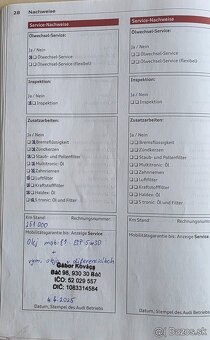 28 Nachweise
Service-Nachweise
Ölwechsel-Service:
Ja / Nein
Ölwechsel-Service
Ölwechsel-Service (flexibel)
Inspektion:
Ja / Nein
Inspektion
Zusatzarbeiten:
Ja / Nein
Bremsflüssigkeit
Zündkerzen
Staub- und Pollenfilter
Multitronic: Öl
Zahnriemen
Luftfilter
Kraftstofffilter
Haldex: Öl
S tronic: Öl und Filter
Km-Stand: Rechnungsnummer:
251 000
Mobilitätsgarantie bis: Anzeige Service
Olej
+
Gábor Kovács
Báč 96, 930 30 Báč
IČO: 52 029 557
DIČ: 1083314584
4.4.2025
Datum, Stempel des Audi Betriebs
Service-Nachweise
Ölwechsel-Service:
Ja / Nein
Ölwechsel-Service
Ölwechsel-Service (flexibel)
Inspektion:
Ja / Nein
Inspektion
Zusatzarbeiten:
Ja / Nein
Bremsflüssigkeit
Zündkerzen
Staub- und Pollenfilter
Multitronic: Öl
Zahnriemen
Luftfilter
Kraftstofffilter
Haldex: Öl
S tronic: Öl und Filter
Km-Stand: Rechnungsnummer:
Mobilitätsgarantie bis: Anzeige Service
Datum, Stempel des Audi Betriebs
Bazos.sk